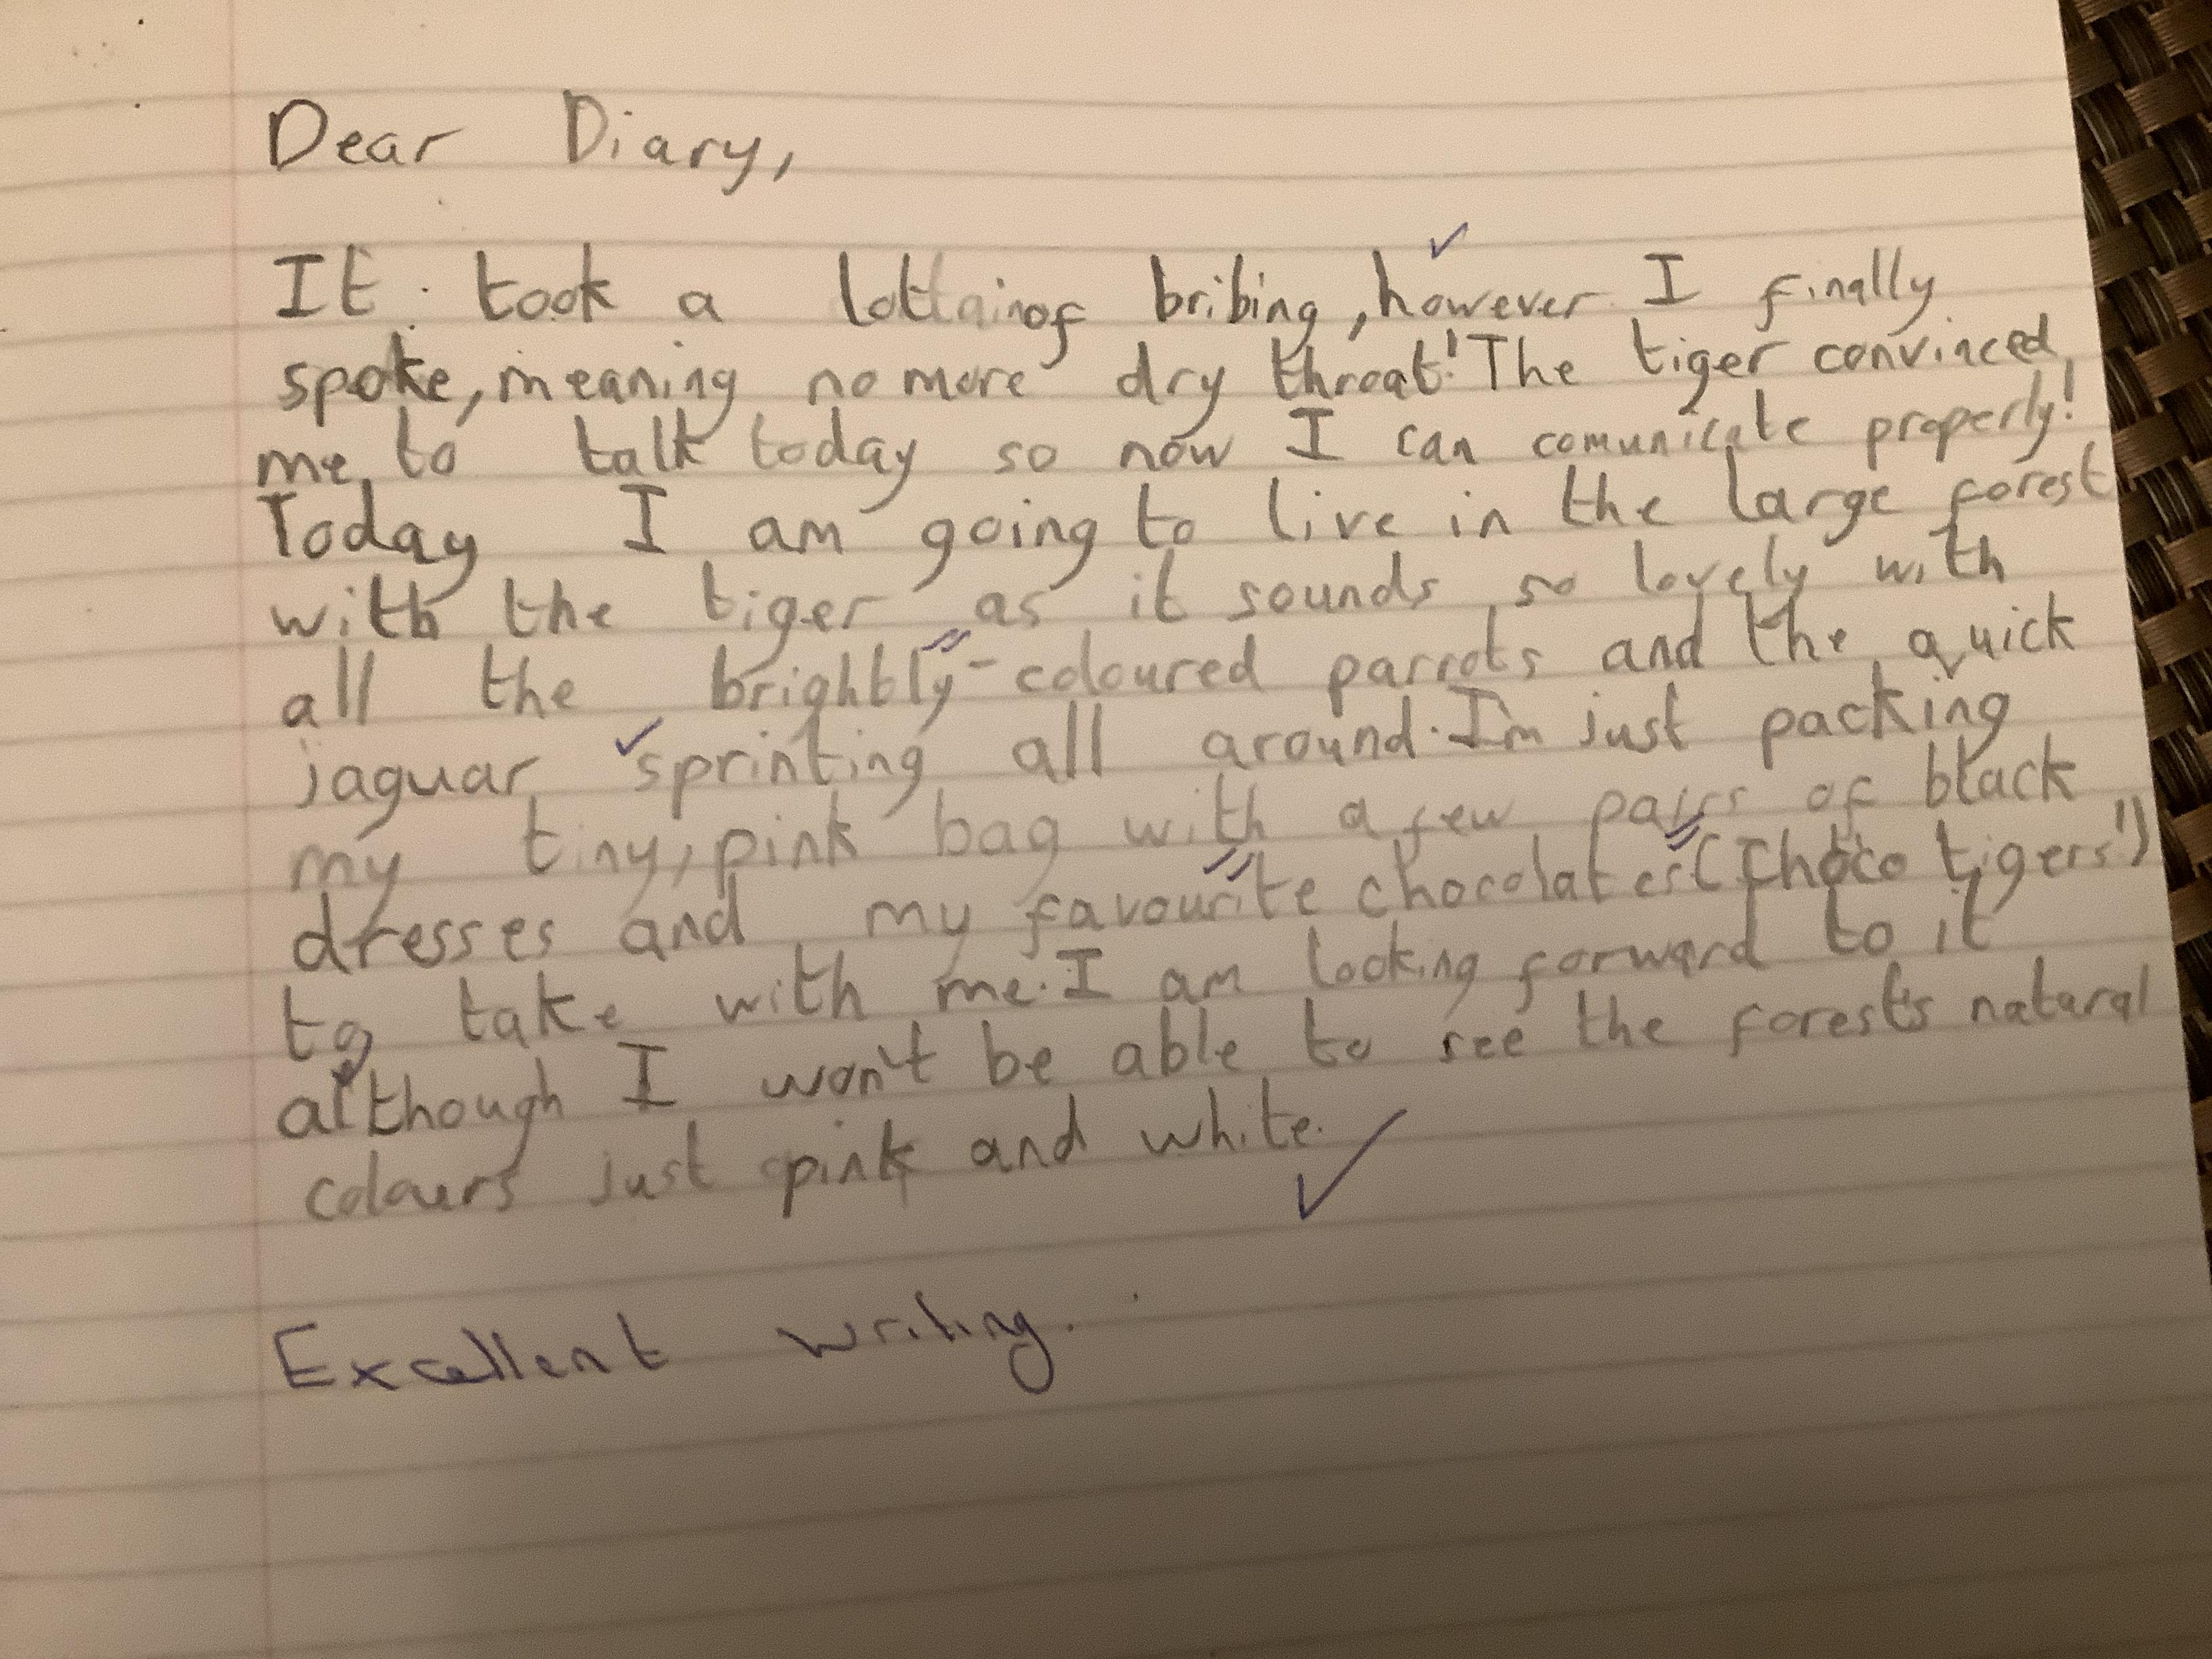 Dear Diary,
It took a lot of bribing, however I finally
spoke, meaning no more dry throat! The tiger convinced
me to talk today so now I can comunicate properly!
Today I am going to live in the large forest
with the tiger as it sounds so lovely with
all the brightly-coloured parrots and the quick
jaguar sprinting all around. I'm just packing
my tiny, pink bag with a few pairs of black
dresses and my favourite chocolates ('Choco tigers')
to take with me. I am looking forward to it
although I won't be able to see the forest's natural
colours just pink and white.
Excellent writing.